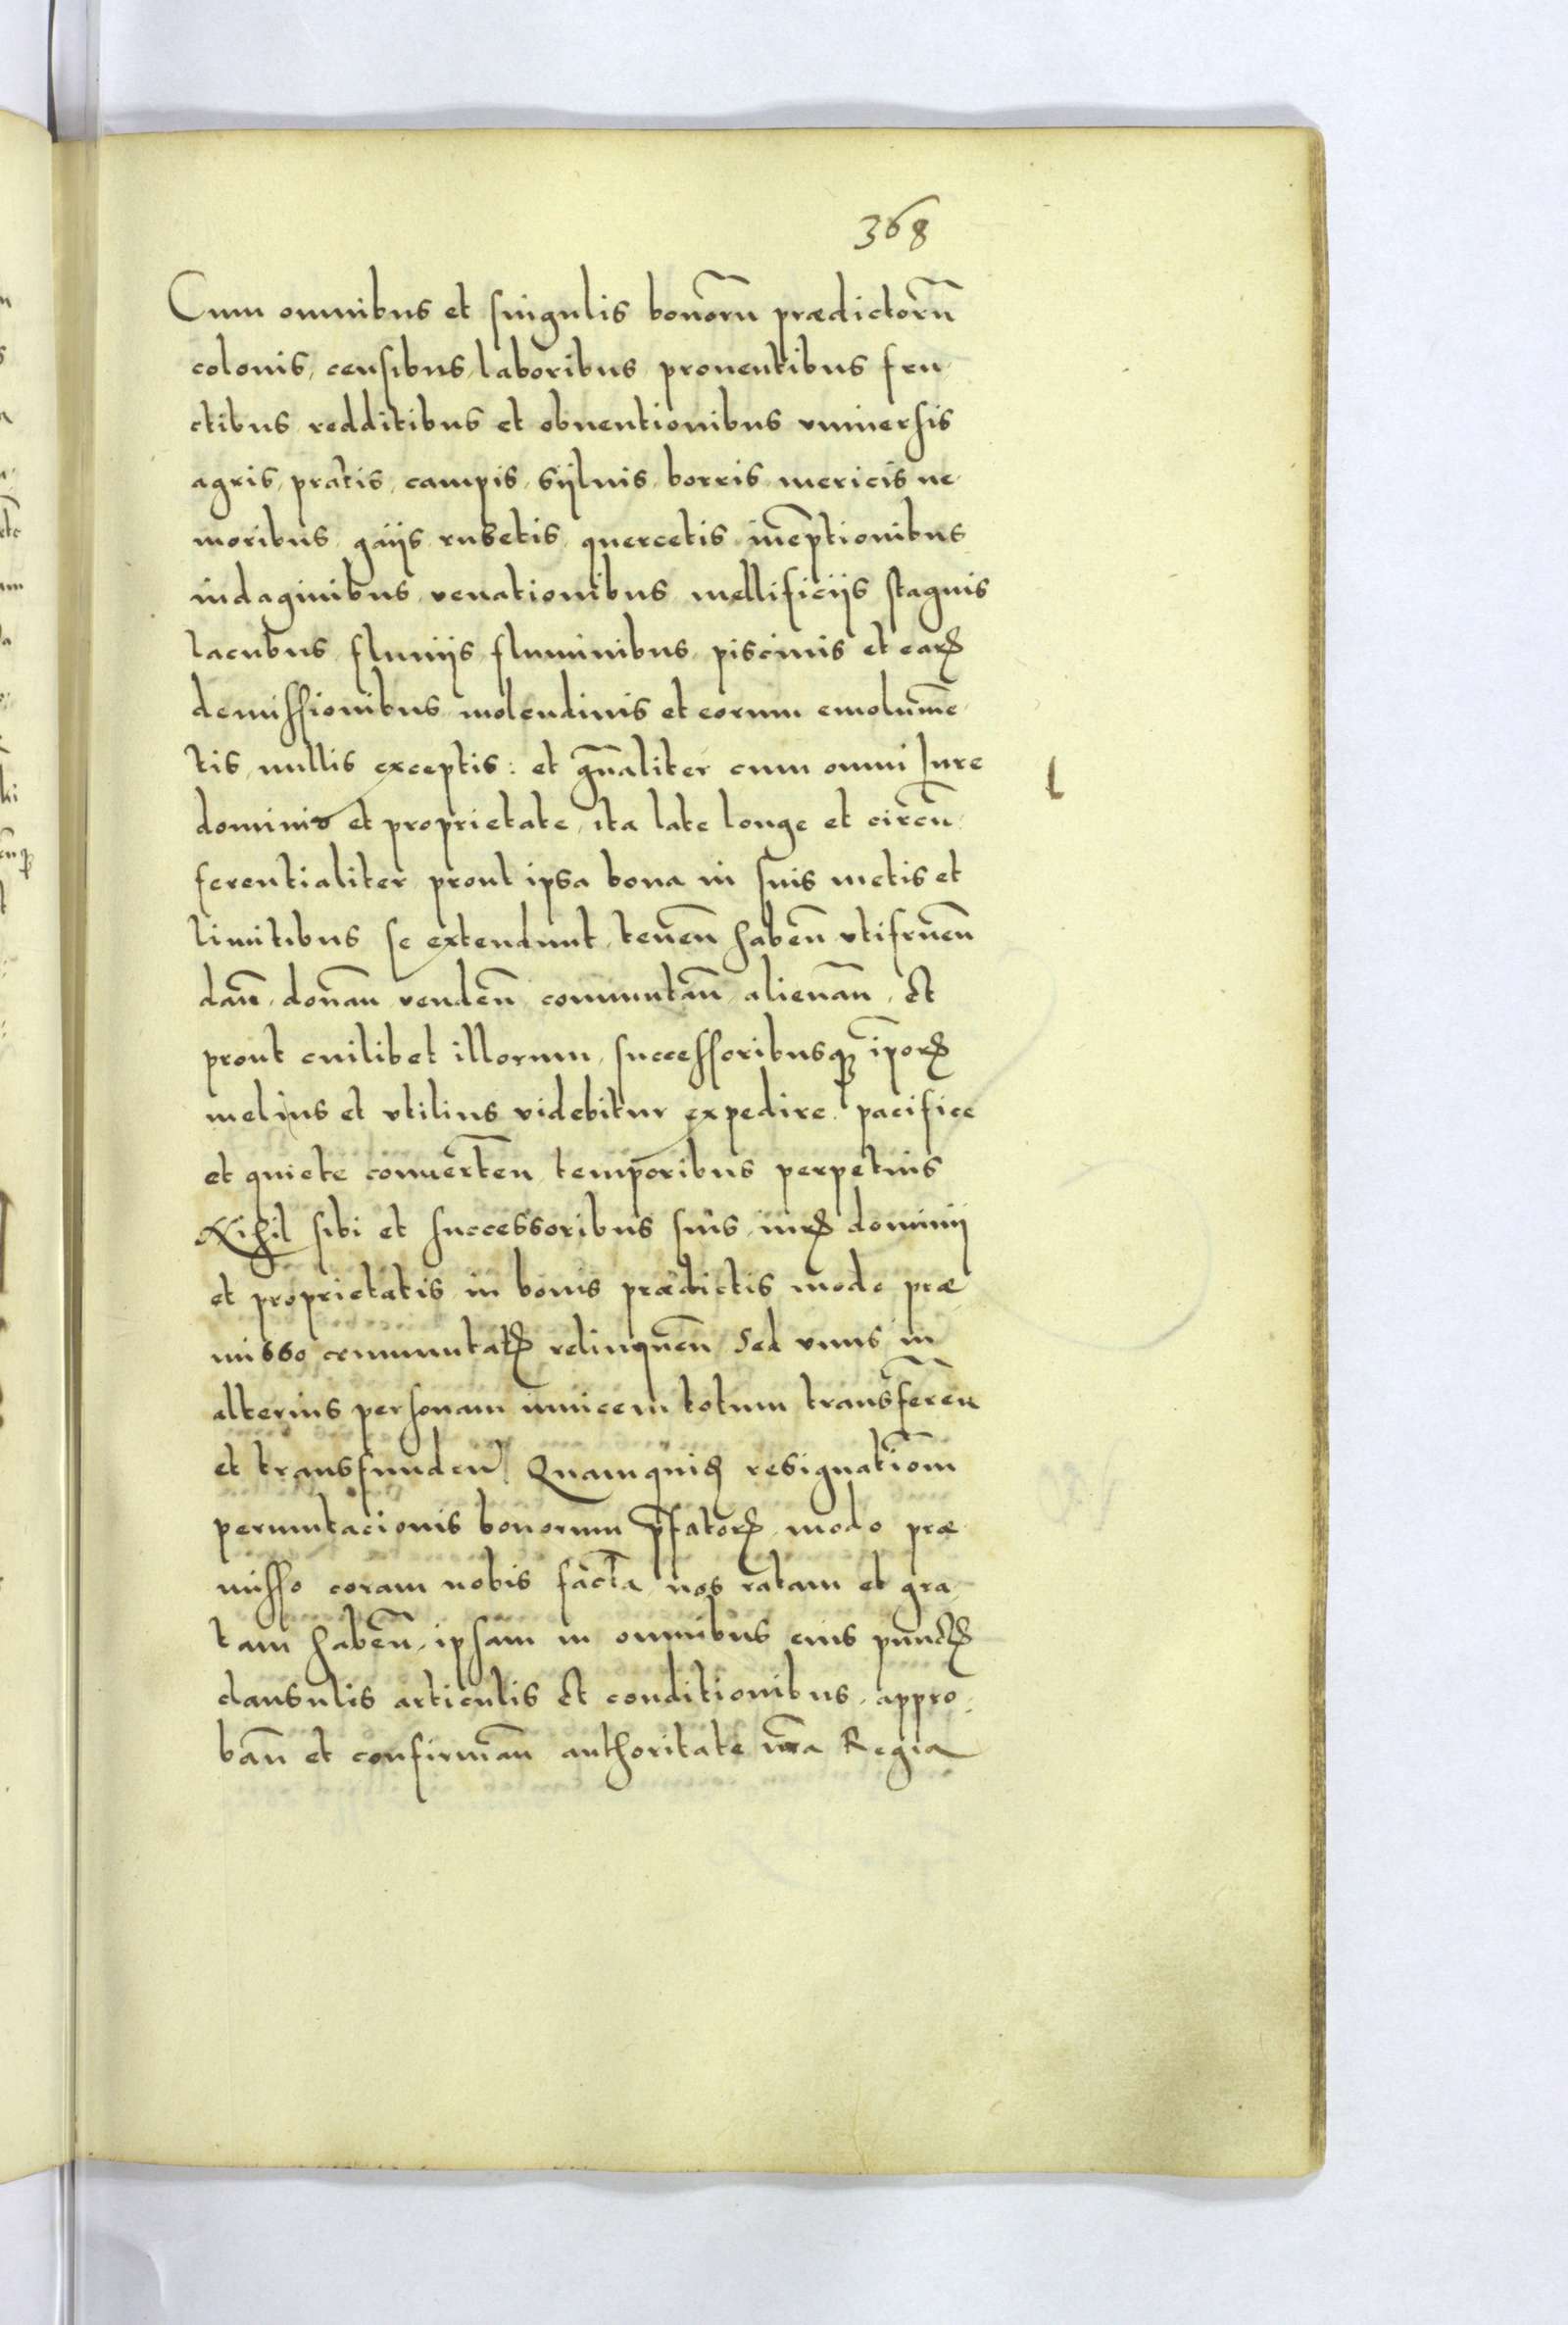 368
Cum omnibus et singulis bonorū prædictorū
colonis, censibus, laboribus, prouentibus fru-
ctibus redditibus et obuentionibus vniuersis
agris, pratis, campis, syluis, borris mericis ne-
moribus, gaijs rubetis, quercetis, inceptionibus
indaginibus, venationibus, mellificijs stagnis
lacubus, fluuijs, fluminibus, piscinis et earꝝ
demissionibus, molendinis et eorum emolumē-
tis, nullis exceptis: et gn̄aliter cum omni Iure
dominio et proprietate, ita late longe et circū-
ferentialiter prout ipsa bona in suis metis et
limitibus se extendunt, tenen̄ haben̄ vtifruen̄
dan̄, donan̄ venden̄ commutan̄, alienan̄, et
prout cuilibet illorum, successoribusqꝫ ip̄orꝝ
melius et vtilius videbitur expedire. pacifice
et quiete conuerten̄ temporibus perpetuis
Nihil sibi et successoribus suis, iurꝭ dominij
et proprietatis in bonis prædictis modo præ-
misso commutatꝭ relinquen̄ Sed vnus in
alterius personam inuicem totum transferen̄
et transfunden̄ Quamquidꝫ resignatiom̄
permutacionis bonorum p̄fatorꝝ modo præ-
misso coram nobis factā, nos ratam et gra-
tam haben̄, ipsam in omnibus eius punctꝭ
clausulis articulis et conditionibus, appro-
ban̄ et confirman̄ authoritate nr̄a Regia